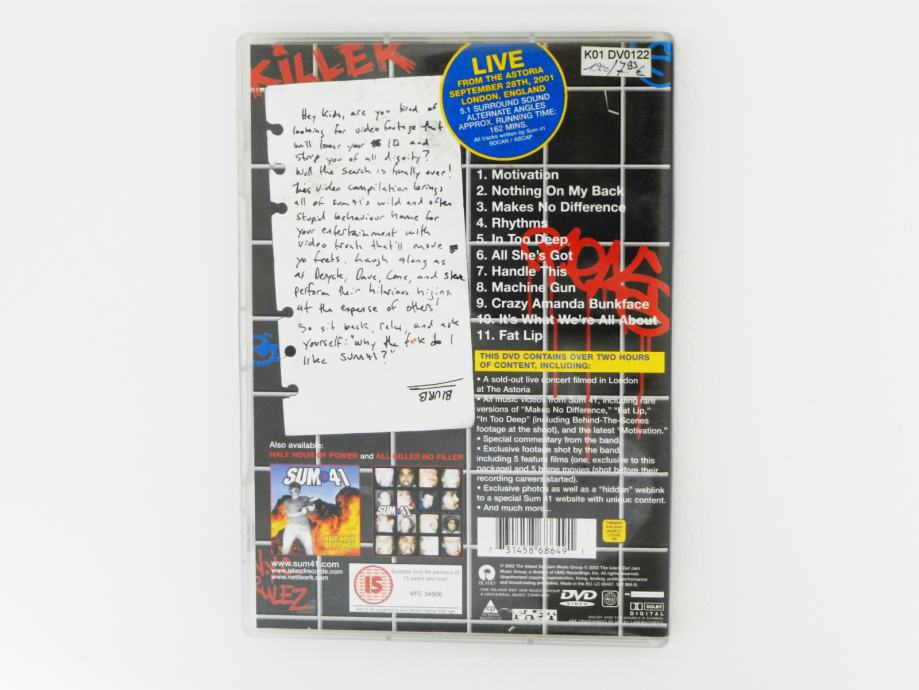 KILLER
K01 DV0122
LIVE
FROM THE ASTORIA
SEPTEMBER 28TH, 2001
LONDON, ENGLAND
5.1 SURROUND SOUND
ALTERNATE ANGLES
APPROX. RUNNING TIME:
162 MINS.
All tracks written by Sum 41
SOCAN / ASCAP
Hey kids, are you tired of
looking for video footage that
will lower your IQ and
strip you of all dignity?
Well the search is finally over!
This video compilation brings
all of sum 41's wild and often
stupid behaviour home for
your entertainment with
video treats that'll move
yo feets. Laugh along as
as Deryck, Dave, Cone, and Steve
perform their hilarious hijinx
at the expense of others!
So sit back, relax, and ask
yourself: "why the f*ck do I
like SUM 41?"
BLURB
1. Motivation
2. Nothing On My Back
3. Makes No Difference
4. Rhythms
5. In Too Deep
6. All She's Got
7. Handle This
8. Machine Gun
9. Crazy Amanda Bunkface
10. It's What We're All About
11. Fat Lip
THIS DVD CONTAINS OVER TWO HOURS
OF CONTENT, INCLUDING:
• A sold-out live concert filmed in London
at The Astoria
• All music videos from Sum 41, including rare
versions of "Makes No Difference," "Fat Lip,"
"In Too Deep" (including Behind-The-Scenes
footage at the shoot), and the latest "Motivation."
• Special commentary from the band.
• Exclusive footage shot by the band,
including 5 feature films (one, exclusive to this
package) and 5 home movies (shot before their
recording careers started).
• Exclusive photos as well as a "hidden" weblink
to a special Sum 41 website with unique content.
• And much more...
Also available:
HALF HOUR OF POWER and ALL KILLER NO FILLER
SUM 41
HALF HOUR
OF POWER
SUM 41
www.sum41.com
www.islandrecords.com
www.nettwerk.com
15
Suitable only for persons of
15 years and over
VFC 34506
Not to be supplied to any person below that age
7 31458 68649 1
ISLAND
THE ISLAND DEF JAM MUSIC GROUP
A UNIVERSAL MUSIC COMPANY
© 2002 The Island Def Jam Music Group ℗ 2002 The Island Def Jam
Music Group, a division of UMG Recordings, Inc. All rights reserved.
Unauthorised copying, reproduction, hiring, lending, public performance
and broadcasting prohibited. Made in the EU.
DVD
VIDEO
DOLBY
DIGITAL